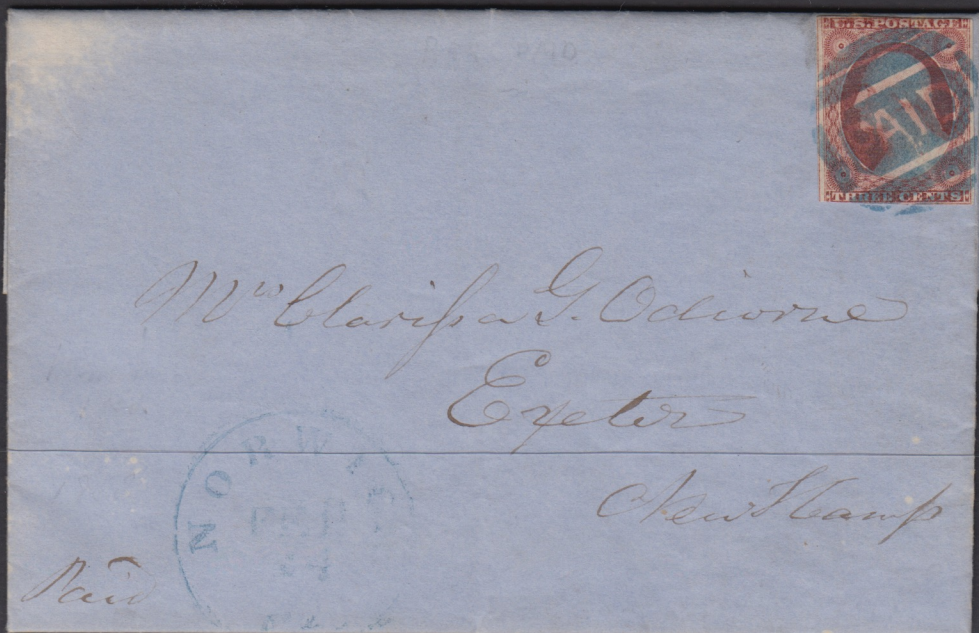 U.S. POSTAGE
PAID
THREE CENTS
Mrs Clarissa G. Odiorne
Exeter
New Hamp
NORWIC
Paid